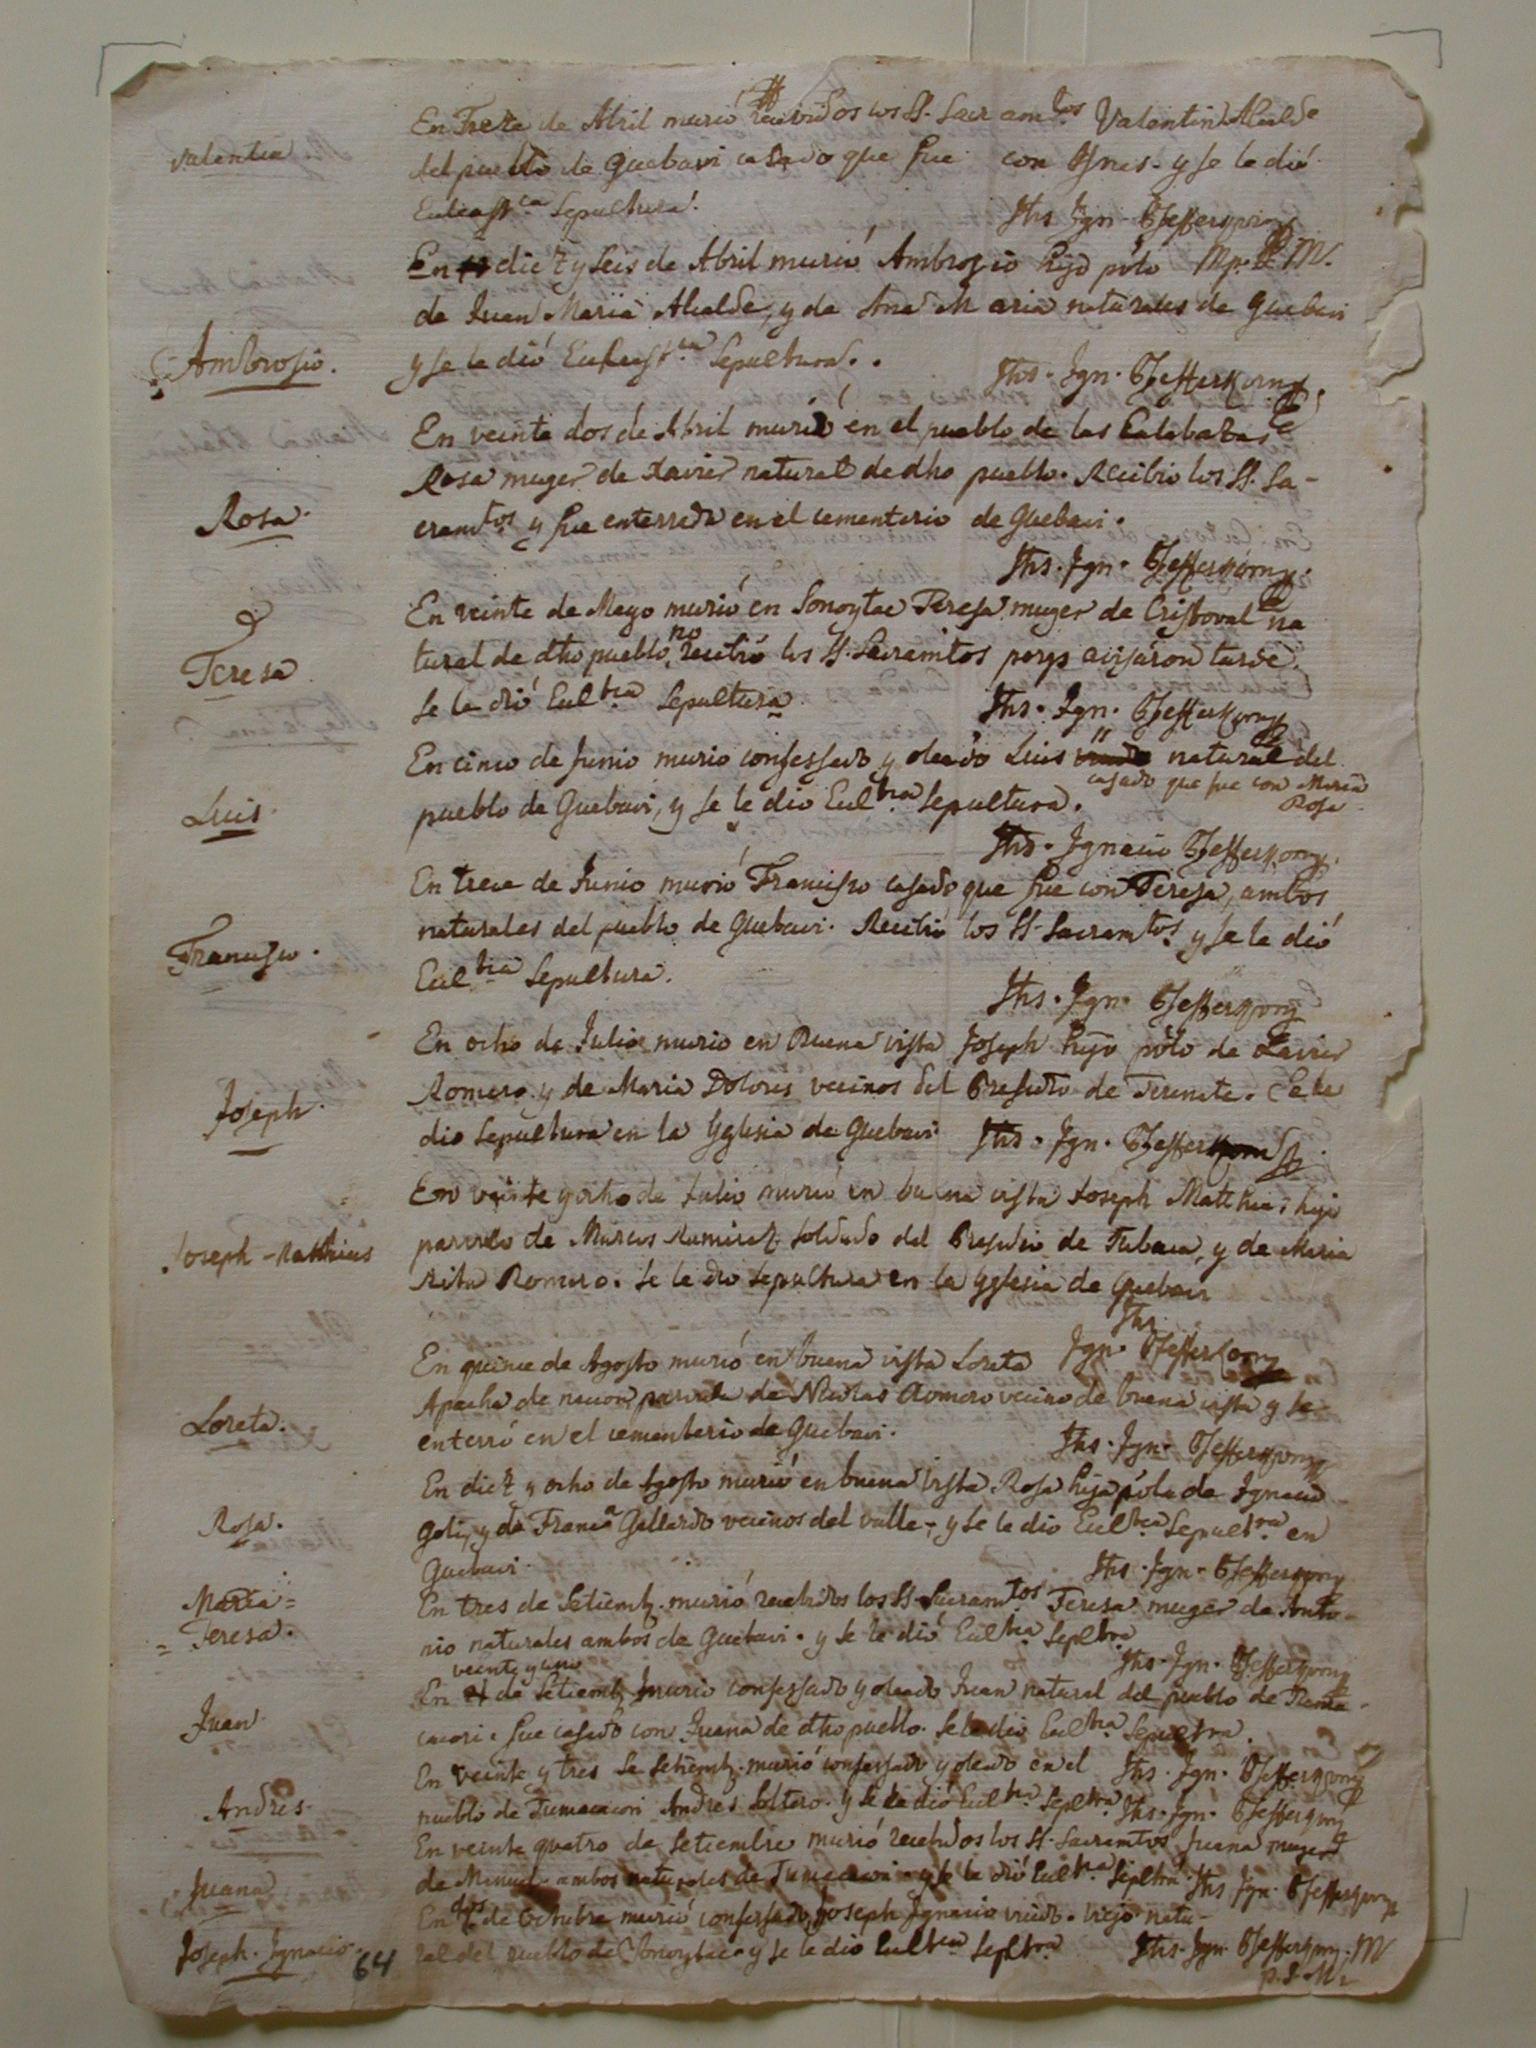 Valentin
En Treze de Abril murió recividos los SS. Sacramtos Valentin Alcalde
del pueblo de Guebavi casado que fue con Ygnes. y se le dió
Eccleasca Sepultura.
Jhs Ign. Pfefferkorn
Mp. M.
Ambrosio.
En diez y seis de Abril murió Ambrosio hijo pólo
de Juan Maria Alcalde, y de Ana Maria naturales de Guebavi
y se le dió Eccleasca Sepultura.
Jhs. Ign. Pfefferkorn
Rosa.
En veinte dos de Abril murió en el pueblo de las Calabazas
Rosa muger de Xavier natural de dho pueblo. Recibio los SS. Sa-
cramtos y fue enterrada en el cementerio de Guebavi.
Jhs. Ign. Pfefferkorn
Teresa
En veinte de Mayo murió en Sonoytac Teresa muger de Cristoval na
tural de dho pueblo no recibió los SS. Sacramtos porqe avisaron tarde
se le dió Ecclca Sepultura
Jhs. Ign. Pfefferkorn
Luis.
En cinco de Junio murio confessado y oleado Luis natural del
casado que fue con Maria
Rosa
pueblo de Guebavi, y se le dio Ecclca Sepultura.
Jhs. Ignacio Pfefferkorn
Francisco.
En trece de Junio murió Francisco casado que fue con Teresa, ambos
naturales del pueblo de Guebavi. Recibió los SS. Sacramtos y se le dió
Ecclca Sepultura.
Jhs. Ign. Pfefferkorn
Joseph.
En ocho de Julio murio en Buena vista Joseph hijo pólo de Xavier
Romero y de Maria Dolores vecinos del Presidio de Terenate. Se le
dio Sepultura en la Yglesia de Guebavi
Jhs. Ign. Pfefferkorn
Joseph-Matthias
En veinte y ocho de Julio murió en buena vista Joseph Matthias hijo
parvulo de Marcos Ramirez soldado del Presidio de Tubaca, y de Maria
Rita Romero. Se le dio Sepultura en la Yglesia de Guebavi
Jhs.
Ign. Pfefferkorn
Loreta.
En quince de Agosto murió en buena vista Loreta
Apacha de nacion, parvula de Nicolas Romero vecino de buena vista y se
enterró en el cementerio de Guebavi.
Jhs. Ign. Pfefferkorn
Rosa.
En diez y ocho de Agosto murió en buena vista Rosa hija póla de Ignacio
y de Franca Gallardo vecinos del valle, y se le dio Ecclca Sepultra en
Guebavi.
Jhs. Ign. Pfefferkorn
Maria=
=Teresa.
En tres de Setiemb. murió recibidos los SS. Sacramtos Teresa muger de Anto-
nio naturales ambos de Guebavi. y se le dió Ecclca Sepltra
Jhs. Ign. Pfefferkorn
Juan
veinte y uno
En 21 de Setiemb. murio confessado y oleado Juan natural del pueblo de Tuma-
cacori. fue casado con Juana de dho pueblo. Se le dio Ecclca Sepultra.
Jhs. Ign. Pfefferkorn
Andres.
En veinte y tres de Setiemb. murió confessado y oleado en el
pueblo de Tumacacori Andres soltero. y se le dió Ecclca Sepltra
Jhs. Ign. Pfefferkorn
Juana
En veinte quatro de Setiembre murió recibidos los SS. Sacramtos Juana muger
de Manuel ambos naturales de Tumacacori y se le dió Ecclca Sepltra.
Jhs Ign. Pfefferkorn
Joseph. Ignacio.
En de Octubre murió confessado Joseph Ignacio viudo. viejo natu-
ral del pueblo de Sonoytac y se le dio Ecclca Sepltra
Jhs. Ign. Pfefferkorn. M
p. I. M.
64